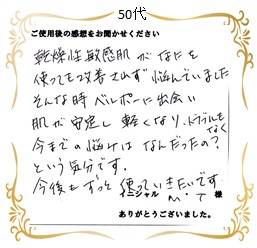 50代
ご使用後の感想をお聞かせください
乾燥性敏感肌がなにを
使っても改善されず悩んでいました
そんな時ベルポーに出会い
肌が安定し軽くなり、トラブルもなく
今までの悩みはなんだったの?
という気分です。
今後もずっと使っていきたいです。
イニシャル M・T 様
ありがとうございました。